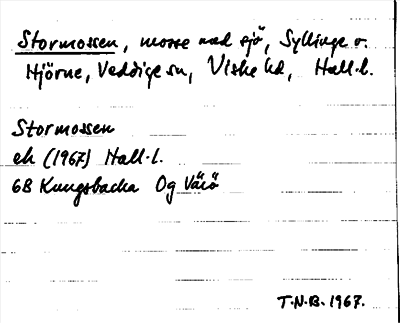 Stormossen, mosse med sjö, Syllinge o.
Hjörne, Veddige sn, Viske hd, Hall.l.
Stormossen
ek (1967) Hall.l.
6B Kungsbacka Og Värö
T.N.B. 1967.